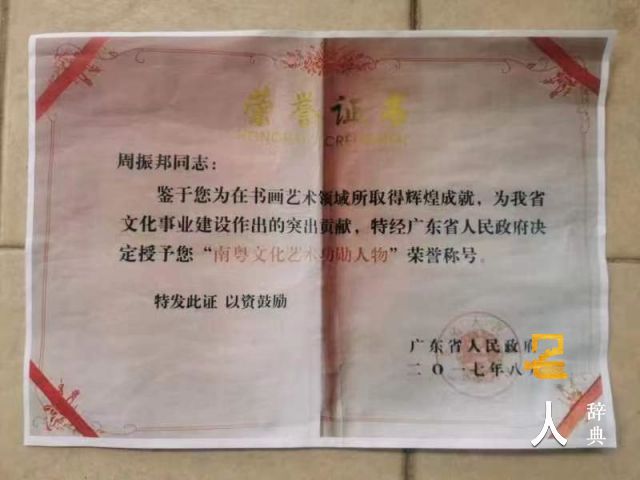 荣誉证书
HONOR CREDENTIAL
周振邦同志：
鉴于您为在书画艺术领域所取得辉煌成就，为我省
文化事业建设作出的突出贡献，特经广东省人民政府决
定授予您“南粤文化艺术功勋人物”荣誉称号。
特发此证 以资鼓励
广东省人民政府
二〇一七年八
人 辞典